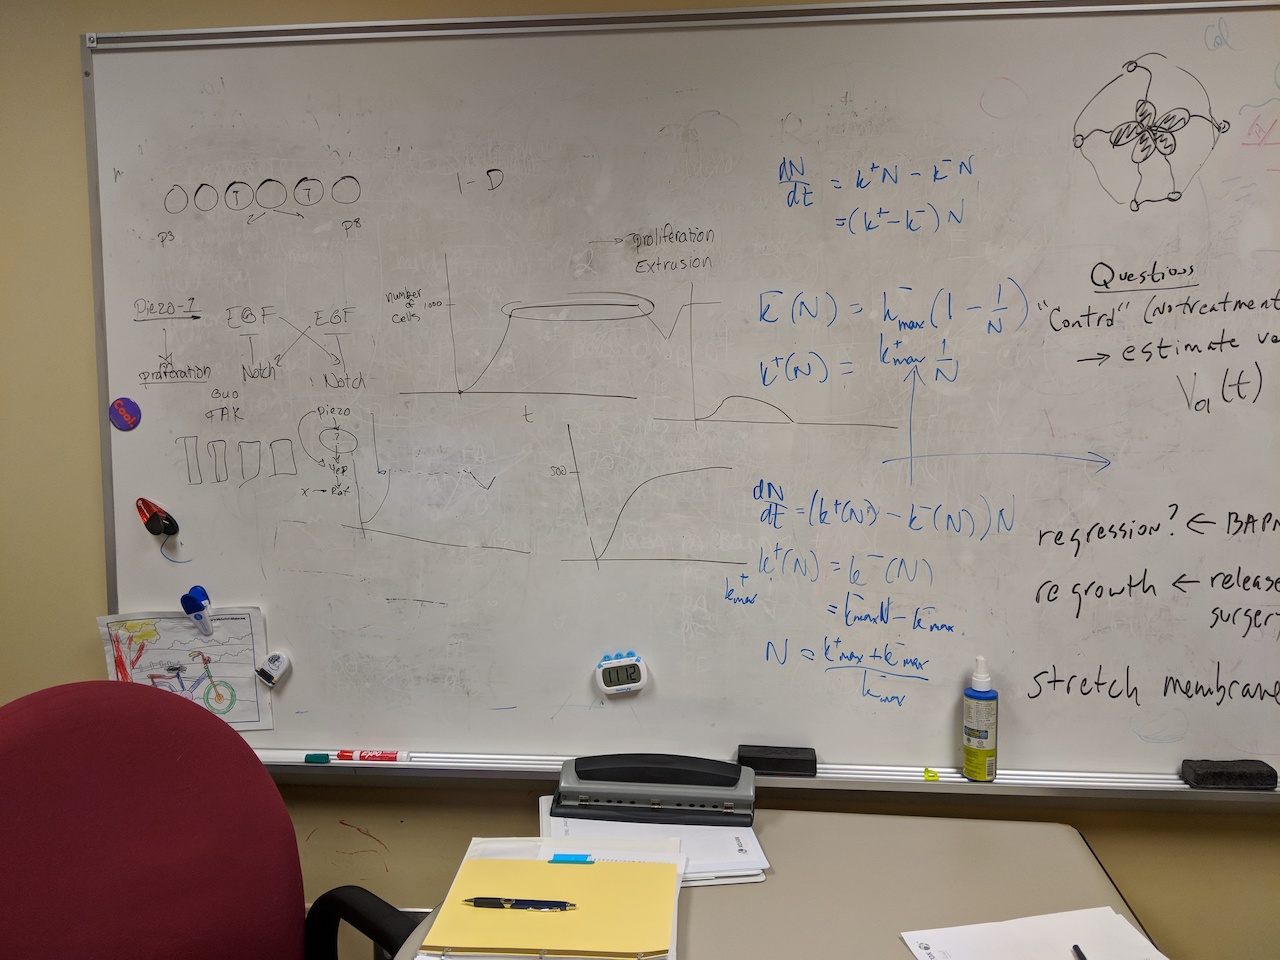 1-D
p3
p8
Piezo-1
proliferation
EGF
EGF
Notch
Notch
FAK
Piezo
?
Yap
x →
Number
of
Cells
1000
→ proliferation
Extrusion
t
500
dN/dt = k⁺N - k⁻N
= (k⁺ - k⁻) N
k⁻(N) = k⁻max (1 - 1/N)
k⁺(N) = k⁺max 1/N
dN/dt = (k⁺(N) - k⁻(N)) N
k⁺(N) = k⁻(N)
k⁺max = k⁻maxN - k⁻max
N = k⁺max + k⁻max / k⁻max
Questions
"Control" (No treatment
→ estimate
V (t)
regression? ← BAPN
regrowth ← release
surgery
stretch membrane
Cool
EXPO